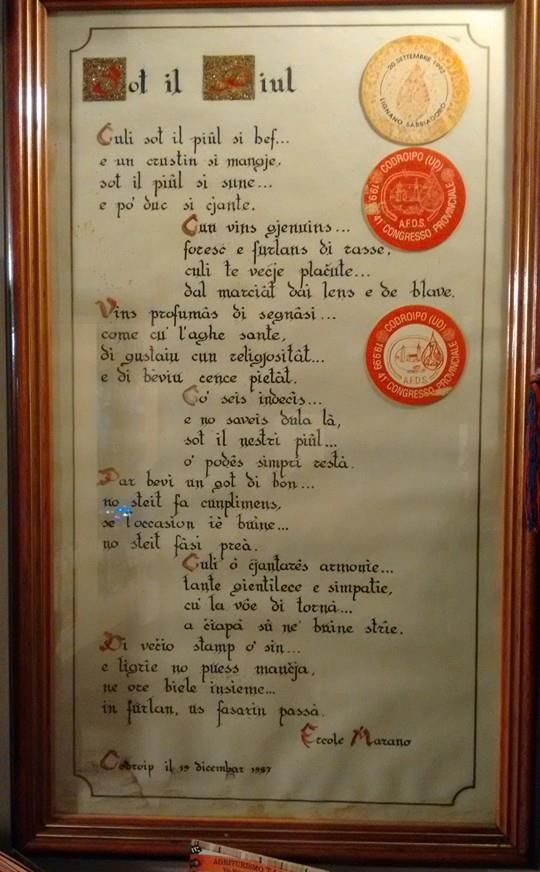 Sot il Piul
Culi sot il piûl si bef...
e un crustin si mangje,
sot il piûl si sune...
e po' duc si cjante.
Cun vins gjenuins...
foresc e furlans di rasse,
culi te vecje plačute...
dal marciât dai lens e de blave.
Vins profumâs di segnâsi...
come cu' l'aghe sante,
di gustaiu cun religjositât...
e di bêviu cence pietât.
Co' seis indecis...
e no saveis dulà là,
sot il nestri piûl...
o' podês simpri restâ.
Par bevi un got di bon...
no steit fa cunplimens,
se l'occasion iè buine...
no steit fâsi preà.
Culi ô cjantarês armonie...
tante gientilece e simpatie,
cu' la vôe di tornâ...
a ciapâ sù ne' buine strie.
Di vecio stamp o' sin...
e ligrie no pùess mancja,
ne ore biele insieme...
in furlan, us fasarin passà.
Ercole Marano
Codroip il 19 dicembar 1987
20 SETTEMBRE 1992
LIGNANO SABBIADORO
CODROIPO (UD)
A.F.D.S.
19.9.99 41° CONGRESSO PROVINCIALE
CODROIPO (UD)
A.F.D.S.
19.9.99 41° CONGRESSO PROVINCIALE
AGRITURISMO